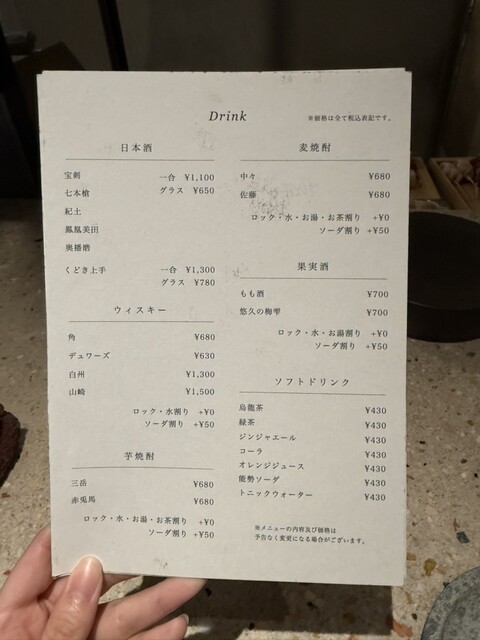 Drink
※価格は全て税込表記です。
日本酒
宝剣 一合 ¥1,100
七本槍 グラス ¥650
紀土
鳳凰美田
奥播磨
くどき上手 一合 ¥1,300
グラス ¥780
ウィスキー
角 ¥680
デュワーズ ¥630
白州 ¥1,300
山崎 ¥1,500
ロック・水割り +¥0
ソーダ割り +¥50
芋焼酎
三岳 ¥680
赤兎馬 ¥680
ロック・水・お湯・お茶割り +¥0
ソーダ割り +¥50
麦焼酎
中々 ¥680
佐藤 ¥680
ロック・水・お湯・お茶割り +¥0
ソーダ割り +¥50
果実酒
もも酒 ¥700
悠久の梅雫 ¥700
ロック・水・お湯割り +¥0
ソーダ割り +¥50
ソフトドリンク
烏龍茶 ¥430
緑茶 ¥430
ジンジャエール ¥430
コーラ ¥430
オレンジジュース ¥430
能勢ソーダ ¥430
トニックウォーター ¥430
※メニューの内容及び価格は
予告なく変更になる場合がございます。